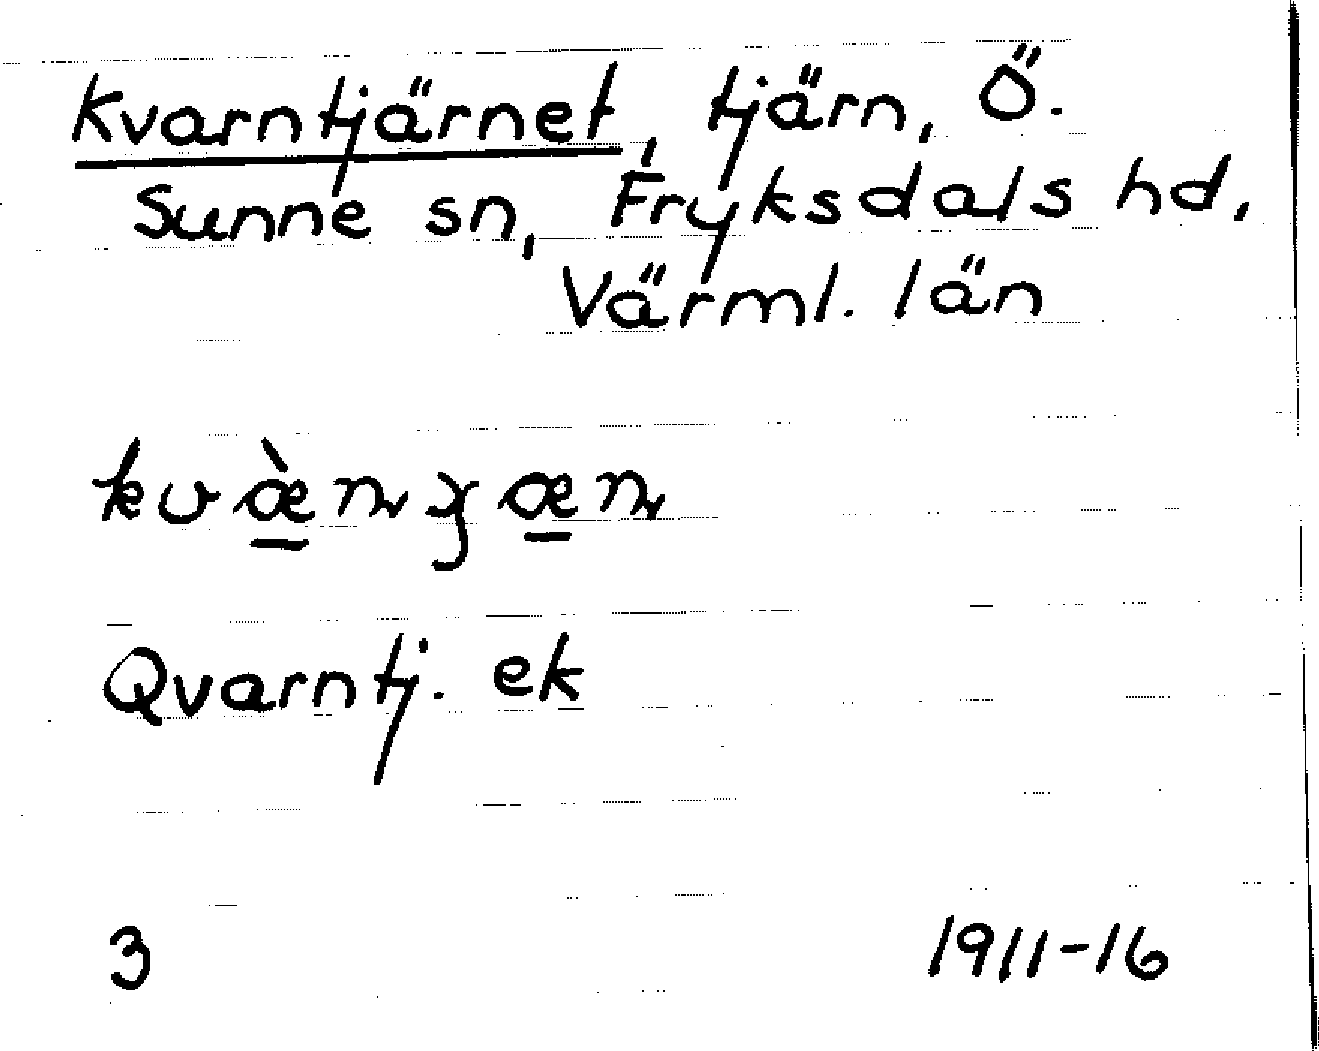 Kvarntjärnet, tjärn, Ö.
Sunne sn, Fryksdals hd,
Värml. län
Qvarntj. ek
3 1911-16